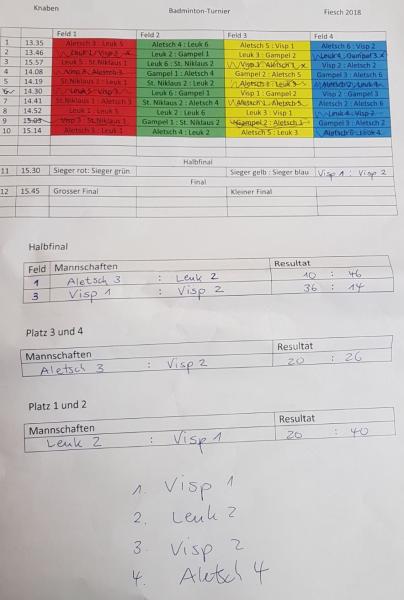 Knaben Badminton-Turnier Fiesch 2018
Feld 1 Feld 2 Feld 3 Feld 4
1 13.35 Aletsch 3 : Leuk 5 Aletsch 4 : Leuk 6 Aletsch 5 : Visp 1 Aletsch 6 : Visp 2
2 13.46 Leuk 6 : Gampel 1 Leuk 3 : Gampel 2
3 13.57 Leuk 5 : St. Niklaus 1 Leuk 6 : St. Niklaus 2 Visp 2 : Aletsch 2
4 14.08 Gampel 1 : Aletsch 4 Gampel 2 : Aletsch 5 Gampel 3 : Aletsch 6
5 14.19 St. Niklaus 1 : Leuk 1 St. Niklaus 2 : Leuk 2
6 14.30 Leuk 6 : Gampel 1 Visp 1 : Gampel 2 Visp 2 : Gampel 3
7 14.41 St. Niklaus 1 : Aletsch 3 St. Niklaus 2 : Aletsch 4 Aletsch 2 : Aletsch 6
8 14.52 Leuk 1 : Leuk 5 Leuk 2 : Leuk 6 Leuk 3 : Visp 1
9 15.03 Visp 3 : St. Niklaus 1 Gampel 1 : St. Niklaus 2 Gampel 3 : Aletsch 2
10 15.14 Aletsch 3 : Leuk 1 Aletsch 4 : Leuk 2 Aletsch 5 : Leuk 3 Aletsch 6 : Leuk 4
Halbfinal
11 15.30 Sieger rot: Sieger grün Sieger gelb : Sieger blau Visp 1 : Visp 2
Final
12 15.45 Grosser Final Kleiner Final
Halbfinal
Feld Mannschaften Resultat
1 Aletsch 3 : Leuk 2 10 : 46
3 Visp 1 : Visp 2 36 : 14
Platz 3 und 4
Mannschaften Resultat
Aletsch 3 : Visp 2 20 : 26
Platz 1 und 2
Mannschaften Resultat
Leuk 2 : Visp 1 20 : 40
1. Visp 1
2. Leuk 2
3. Visp 2
4. Aletsch 4